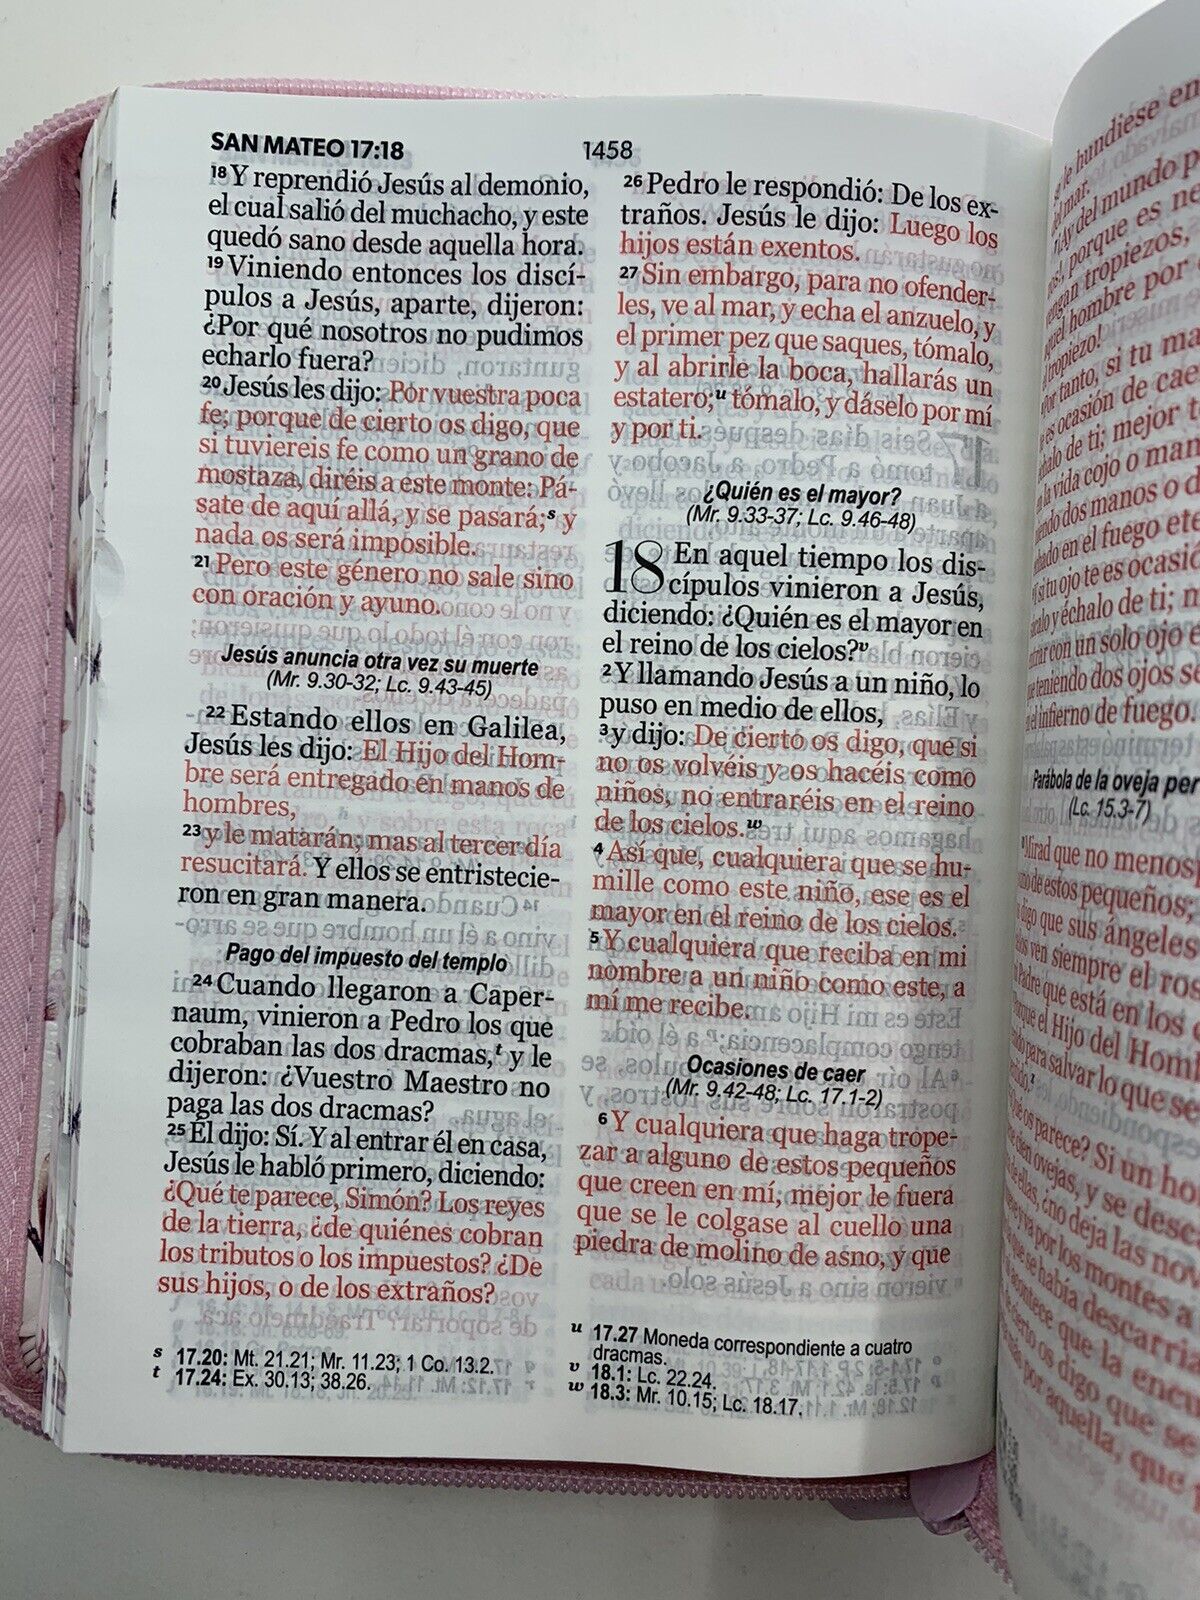 SAN MATEO 17:18
1458
18 Y reprendió Jesús al demonio,
el cual salió del muchacho, y este
quedó sano desde aquella hora.
19 Viniendo entonces los discí-
pulos a Jesús, aparte, dijeron:
¿Por qué nosotros no pudimos
echarlo fuera?
20 Jesús les dijo: Por vuestra poca
fe; porque de cierto os digo, que
si tuviereis fe como un grano de
mostaza, diréis a este monte: Pá-
sate de aquí allá, y se pasará;s y
nada os será imposible.
21 Pero este género no sale sino
con oración y ayuno.
Jesús anuncia otra vez su muerte
(Mr. 9.30-32; Lc. 9.43-45)
22 Estando ellos en Galilea,
Jesús les dijo: El Hijo del Hom-
bre será entregado en manos de
hombres,
23 y le matarán; mas al tercer día
resucitará. Y ellos se entristecie-
ron en gran manera.
Pago del impuesto del templo
24 Cuando llegaron a Caper-
naum, vinieron a Pedro los que
cobraban las dos dracmas,t y le
dijeron: ¿Vuestro Maestro no
paga las dos dracmas?
25 Él dijo: Sí. Y al entrar él en casa,
Jesús le habló primero, diciendo:
¿Qué te parece, Simón? Los reyes
de la tierra, ¿de quiénes cobran
los tributos o los impuestos? ¿De
sus hijos, o de los extraños?
s 17.20: Mt. 21.21; Mr. 11.23; 1 Co. 13.2.
t 17.24: Ex. 30.13; 38.26.
26 Pedro le respondió: De los ex-
traños. Jesús le dijo: Luego los
hijos están exentos.
27 Sin embargo, para no ofender-
les, ve al mar, y echa el anzuelo, y
el primer pez que saques, tómalo,
y al abrirle la boca, hallarás un
estatero;u tómalo, y dáselo por mí
y por ti.
¿Quién es el mayor?
(Mr. 9.33-37; Lc. 9.46-48)
18 En aquel tiempo los dis-
cípulos vinieron a Jesús,
diciendo: ¿Quién es el mayor en
el reino de los cielos?v
2 Y llamando Jesús a un niño, lo
puso en medio de ellos,
3 y dijo: De cierto os digo, que si
no os volvéis y os hacéis como
niños, no entraréis en el reino
de los cielos.w
4 Así que, cualquiera que se hu-
mille como este niño, ese es el
mayor en el reino de los cielos.
5 Y cualquiera que reciba en mi
nombre a un niño como este, a
mí me recibe.
Ocasiones de caer
(Mr. 9.42-48; Lc. 17.1-2)
6 Y cualquiera que haga trope-
zar a alguno de estos pequeños
que creen en mí, mejor le fuera
que se le colgase al cuello una
piedra de molino de asno, y que
u 17.27 Moneda correspondiente a cuatro
dracmas.
v 18.1: Lc. 22.24.
w 18.3: Mr. 10.15; Lc. 18.17.
se le hundiese en
del mar.
¡Ay del mundo p
porque es ne
vengan tropiezos,
aquel hombre por
el tropiezo!
Por tanto, si tu ma
es ocasión de caer
échalo de ti; mejor t
en la vida cojo o man
teniendo dos manos o d
echado en el fuego ete
si tu ojo te es ocasió
sácalo y échalo de ti; m
entrar con un solo ojo e
que teniendo dos ojos se
en el infierno de fuego.
Parábola de la oveja per
(Lc. 15.3-7)
Mirad que no menosp
uno de estos pequeños;
os digo que sus ángeles
cielos ven siempre el ros
Padre que está en los
Porque el Hijo del Hom
para salvar lo que se
os parece? Si un ho
cien ovejas, y se desca
de ellas, ¿no deja las nov
y va por los montes a
que se había descarri
acontece que la encu
de cierto os digo que se
por aquella, que p